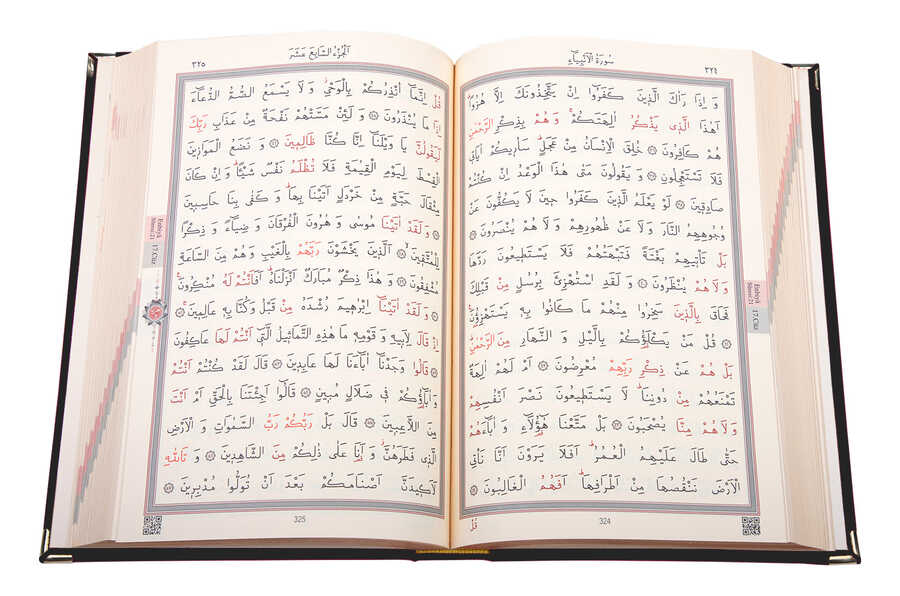 سورة الأنبياء
٣٢٤
وَ اِذَا رَاٰكَ الَّذٖينَ كَفَرُوا اِنْ يَتَّخِذُونَكَ اِلَّا هُزُوًا
اَهٰذَا الَّذٖى يَذْكُرُ اٰلِهَتَكُمْ وَ هُمْ بِذِكْرِ الرَّحْمٰنِ
هُمْ كَافِرُونَ خُلِقَ الْاِنْسَانُ مِنْ عَجَلٍ سَاُرٖيكُمْ اٰيَاتٖى
فَلَا تَسْتَعْجِلُونِ وَ يَقُولُونَ مَتٰى هٰذَا الْوَعْدُ اِنْ كُنْتُمْ
صَادِقٖينَ لَوْ يَعْلَمُ الَّذٖينَ كَفَرُوا حٖينَ لَا يَكُفُّونَ عَنْ
وُجُوهِهِمُ النَّارَ وَ لَا عَنْ ظُهُورِهِمْ وَ لَا هُمْ يُنْصَرُونَ
بَلْ تَاْتٖيهِمْ بَغْتَةً فَتَبْهَتُهُمْ فَلَا يَسْتَطٖيعُونَ رَدَّهَا
وَ لَا هُمْ يُنْظَرُونَ وَ لَقَدِ اسْتُهْزِئَ بِرُسُلٍ مِنْ قَبْلِكَ
فَحَاقَ بِالَّذٖينَ سَخِرُوا مِنْهُمْ مَا كَانُوا بِهٖ يَسْتَهْزِؤُنَ
قُلْ مَنْ يَكْلَؤُكُمْ بِالَّيْلِ وَ النَّهَارِ مِنَ الرَّحْمٰنِ
بَلْ هُمْ عَنْ ذِكْرِ رَبِّهِمْ مُعْرِضُونَ اَمْ لَهُمْ اٰلِهَةٌ
تَمْنَعُهُمْ مِنْ دُونِنَا لَا يَسْتَطٖيعُونَ نَصْرَ اَنْفُسِهِمْ
وَ لَا هُمْ مِنَّا يُصْحَبُونَ بَلْ مَتَّعْنَا هٰؤُلَاءِ وَ اٰبَاءَهُمْ
حَتّٰى طَالَ عَلَيْهِمُ الْعُمُرُ اَفَلَا يَرَوْنَ اَنَّا نَاْتِى
الْاَرْضَ نَنْقُصُهَا مِنْ اَطْرَافِهَا اَفَهُمُ الْغَالِبُونَ
قُلْ
324
Enbiyâ
Sûresi:21
17.Cüz
الجزء السابع عشر
٣٢٥
قُلْ اِنَّمَا اُنْذِرُكُمْ بِالْوَحْىِ وَ لَا يَسْمَعُ الصُّمُّ الدُّعَاءَ
اِذَا مَا يُنْذَرُونَ وَ لَئِنْ مَسَّتْهُمْ نَفْحَةٌ مِنْ عَذَابِ رَبِّكَ
لَيَقُولُنَّ يَا وَيْلَنَا اِنَّا كُنَّا ظَالِمٖينَ وَ نَضَعُ الْمَوَازٖينَ
الْقِسْطَ لِيَوْمِ الْقِيٰمَةِ فَلَا تُظْلَمُ نَفْسٌ شَيْئًا وَ اِنْ كَانَ
مِثْقَالَ حَبَّةٍ مِنْ خَرْدَلٍ اَتَيْنَا بِهَا وَ كَفٰى بِنَا حَاسِبٖينَ
وَ لَقَدْ اٰتَيْنَا مُوسٰى وَ هٰرُونَ الْفُرْقَانَ وَ ضِيَاءً وَ ذِكْرًا
لِلْمُتَّقٖينَ اَلَّذٖينَ يَخْشَوْنَ رَبَّهُمْ بِالْغَيْبِ وَ هُمْ مِنَ السَّاعَةِ
مُشْفِقُونَ وَ هٰذَا ذِكْرٌ مُبَارَكٌ اَنْزَلْنَاهُ اَفَاَنْتُمْ لَهُ مُنْكِرُونَ
وَ لَقَدْ اٰتَيْنَا اِبْرٰهٖيمَ رُشْدَهُ مِنْ قَبْلُ وَ كُنَّا بِهٖ عَالِمٖينَ
اِذْ قَالَ لِاَبٖيهِ وَ قَوْمِهٖ مَا هٰذِهِ التَّمَاثٖيلُ الَّتٖى اَنْتُمْ لَهَا عَاكِفُونَ
قَالُوا وَجَدْنَا اٰبَاءَنَا لَهَا عَابِدٖينَ قَالَ لَقَدْ كُنْتُمْ اَنْتُمْ
وَ اٰبَاؤُكُمْ فٖى ضَلَالٍ مُبٖينٍ قَالُوا اَجِئْتَنَا بِالْحَقِّ اَمْ اَنْتَ
مِنَ اللَّاعِبٖينَ قَالَ بَلْ رَبُّكُمْ رَبُّ السَّمٰوَاتِ وَ الْاَرْضِ
الَّذٖى فَطَرَهُنَّ وَ اَنَا عَلٰى ذٰلِكُمْ مِنَ الشَّاهِدٖينَ وَ تَاللّٰهِ
لَاَكٖيدَنَّ اَصْنَامَكُمْ بَعْدَ اَنْ تُوَلُّوا مُدْبِرٖينَ
325
Enbiyâ
Sûresi:21
17.Cüz